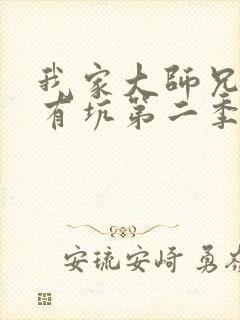 我家大師兄
有坑第二季
安琉安崎 勇